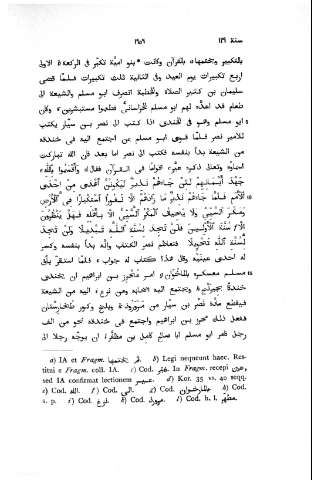 سنة ١٢٩ ١٩٥٩
بالتكبير وتختمها بالقرآن وكانت بنو اميّة تكبّر فى الركعة الاولى
اربع تكبيرات يوم العيد وفى الثانية ثلث تكبيرات فلمّا قضى
سليمان بن كثير الصلاة والخطبة انصرف ابو مسلم والشيعة الى
طعام قد اعدّه لهم ابو مسلم الخراسانىّ فطعموا مستبشرين وكان
ابو مسلم وهو فى الخندق اذا كتب الى نصر بن سيّار يكتب
للامير نصر فلمّا قوى ابو مسلم بمن اجتمع اليه فى خندقه
من الشيعة بدأ بنفسه فكتب الى نصر اما بعد فانّ الله تباركت
اسماؤه وتعالى ذكره عيّر اقواما فى القرآن فقال وَأَقْسَمُوا بِٱللَّهِ
جَهْدَ أَيْمَانِهِمْ لَئِنْ جَاءَهُمْ نَذِيرٌ لَيَكُونُنَّ أَهْدَى مِنْ إِحْدَى
ٱلْأُمَمِ فَلَمَّا جَاءَهُمْ نَذِيرٌ مَا زَادَهُمْ إِلَّا نُفُورًا ٱسْتِكْبَارًا فِى ٱلْأَرْضِ ١٠
وَمَكْرَ ٱلسَّيِّئِ وَلَا يَحِيقُ ٱلْمَكْرُ ٱلسَّيِّئُ إِلَّا بِأَهْلِهِ فَهَلْ يَنْظُرُونَ
إِلَّا سُنَّةَ ٱلْأَوَّلِينَ فَلَنْ تَجِدَ لِسُنَّةِ ٱللَّهِ تَبْدِيلًا وَلَنْ تَجِدَ
لِسُنَّةِ ٱللَّهِ تَحْوِيلًا فتعاظم نصر الكتاب وانّه بدأ بنفسه وكسر
له احدى عينيه وقال هذا كتاب له جواب فلمّا استقرّ بأبى
مسلم معسكره بالماخُوان امر مُحْرِز بن ابراهيم ان يخندق
خندقًا بجِيرَنْج ويجتمع اليه اصحابه ومن نزع اليه من الشيعة
فيقطع مادّة نصر بن سيّار من مَرْورُوذ وبلخ وكور طخارستان
ففعل ذلك محرز بن ابراهيم واجتمع فى خندقه نحو من الف
رجل فامر ابو مسلم ابا صالح كامل بن مظفّر ان يوجّه رجلا الى
a) IA et Fragm. ثم يختمها. b) Legi nequeunt haec. Res-
titui e Fragm. coll. IA. c) Cod. In Fragm. recepi
sed IA confirmat lectionem d) Kor. 35 vs. 40 seqq.
e) Cod. الله. f) Cod. الى. g) Cod. h) Cod.
s. p. i) Cod. k) Cod. l) Cod. h. l. مطهر.